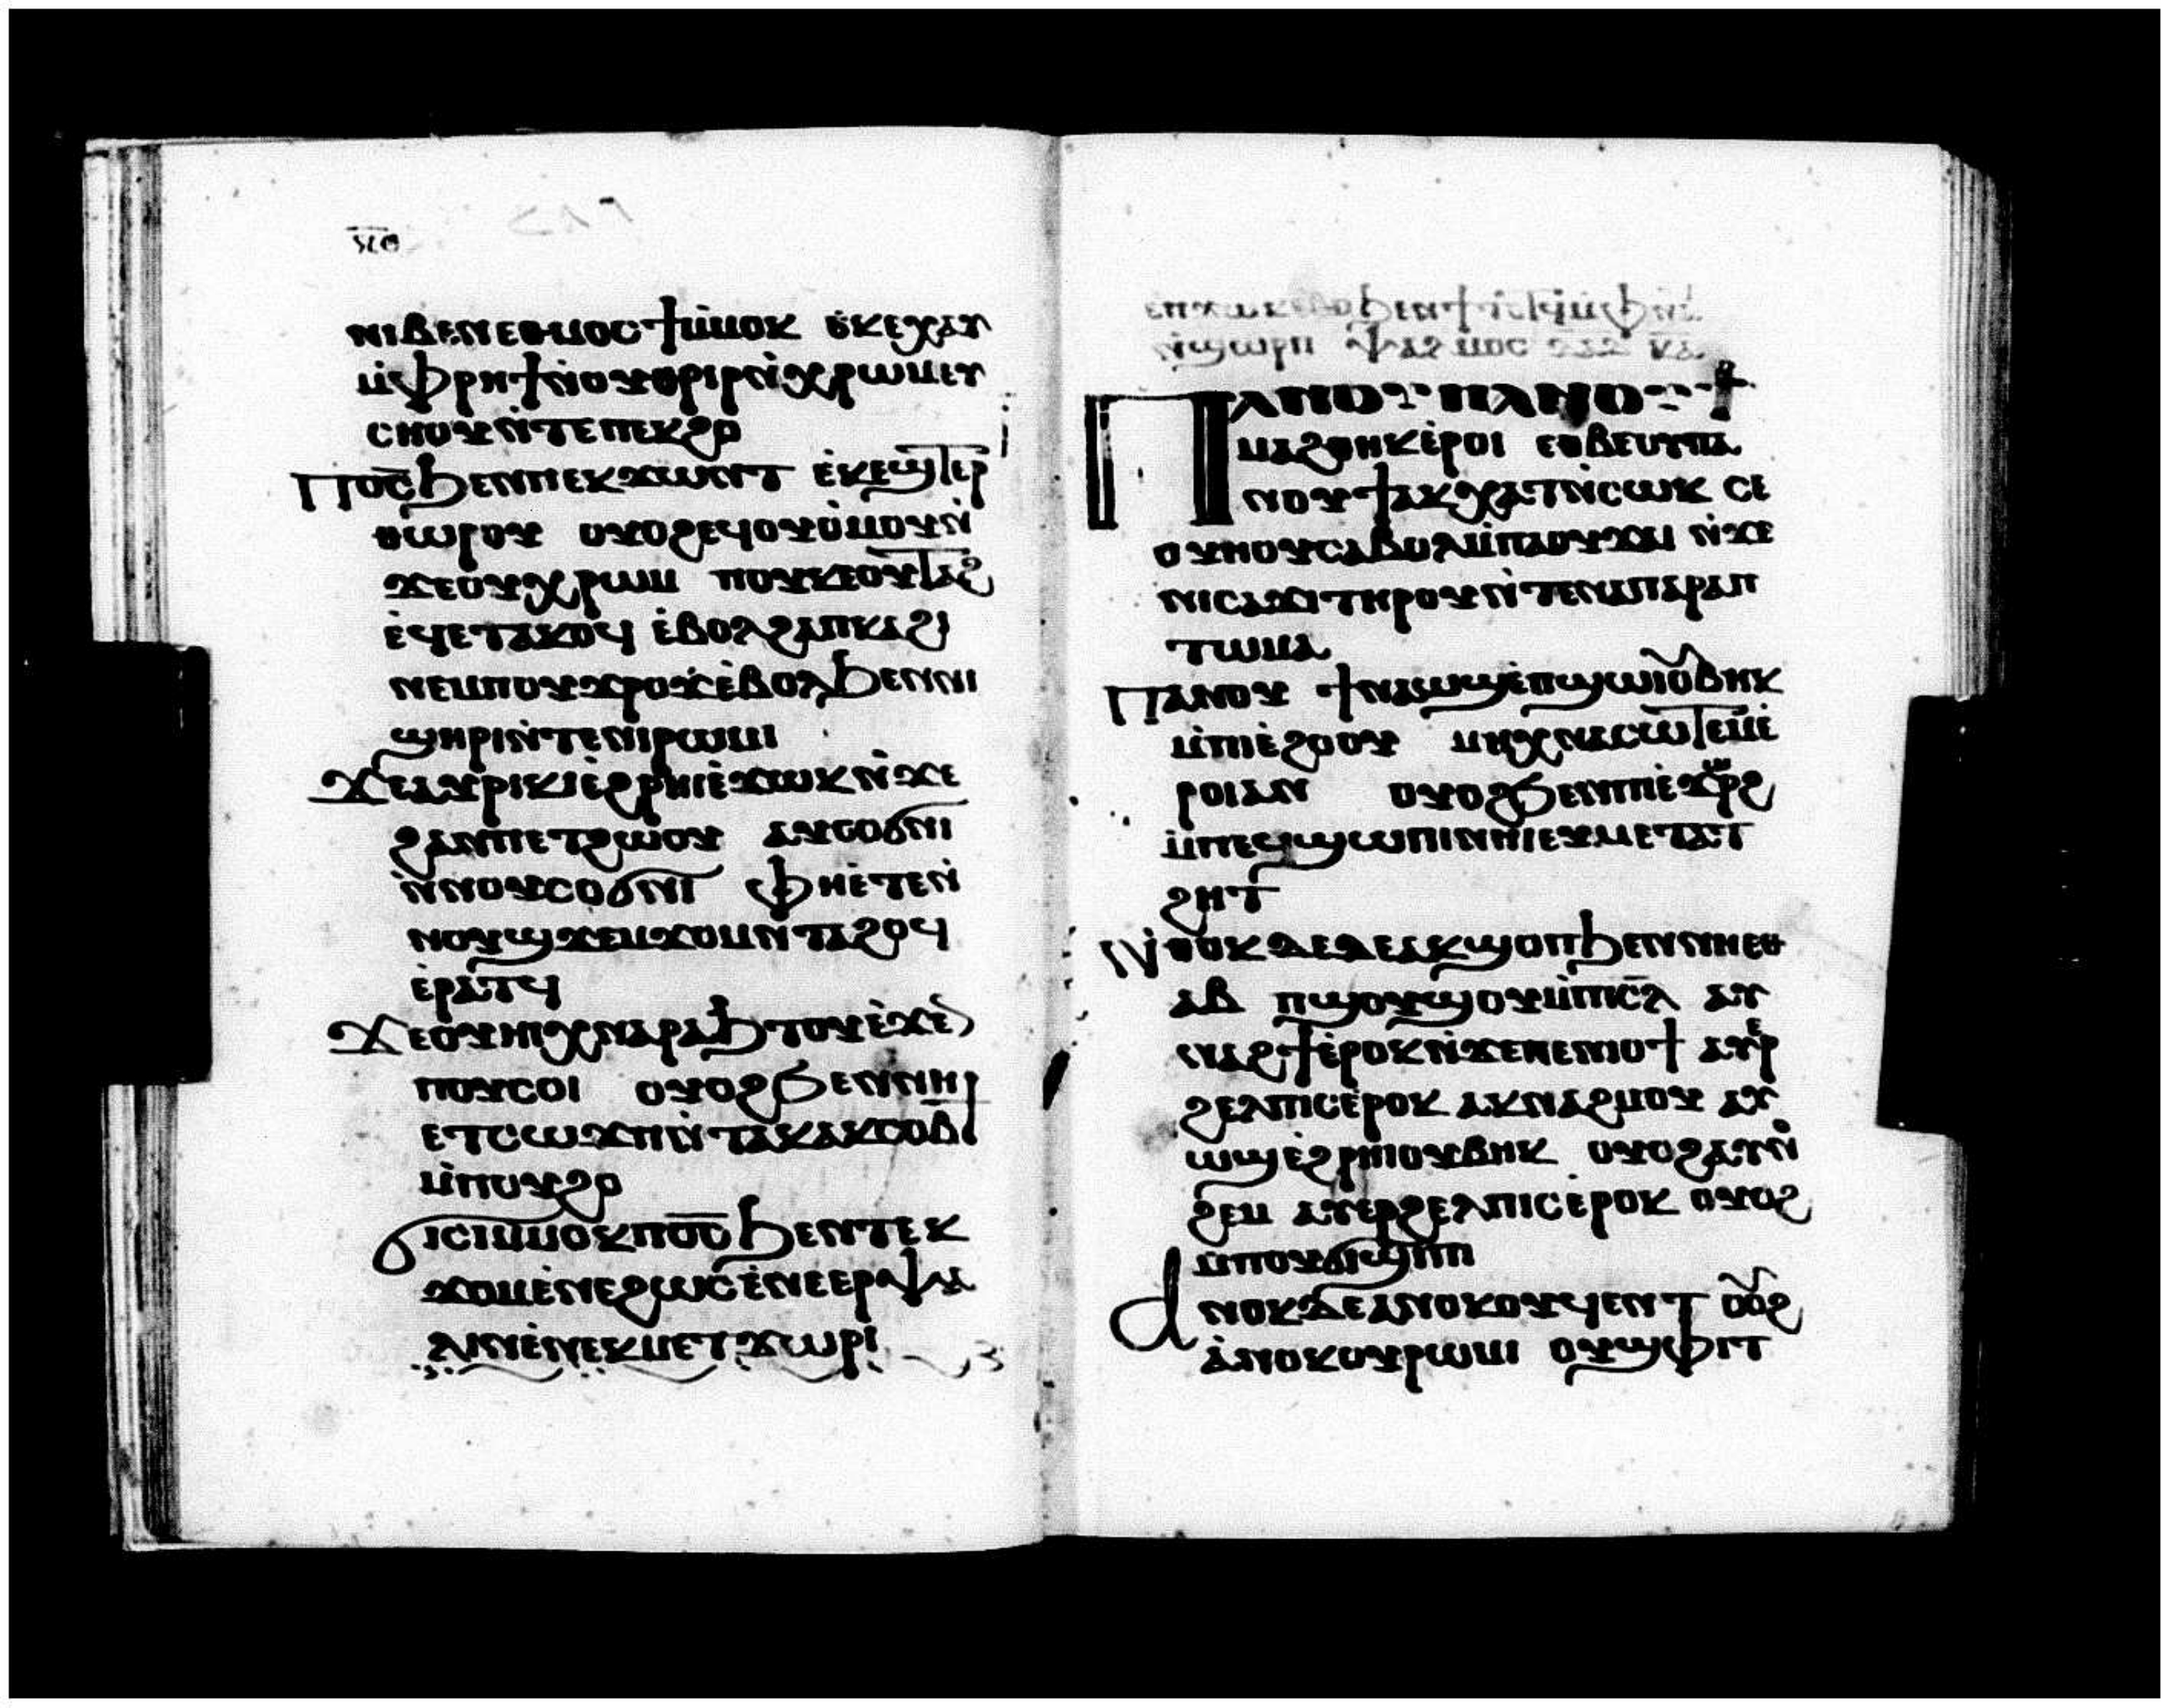 ⲕⲑ
ⲛⲓⲃⲉⲛⲉⲑⲙⲟⲥϯⲙ̀ⲙⲟⲕ ⲉ̀ⲕⲉⲭⲁⲩ
ⲙ̀ⲫⲣⲏϯⲛ̀ⲟⲩⲑⲣⲓⲣⲛ̀ⲭⲣⲱⲙⲉⲩ
ⲥⲏⲟⲩⲛ̀ⲧⲉⲡⲉⲕϩⲟ
Ⲡⲟ̅ⲥ̅ϧⲉⲛⲡⲉⲕϫⲱⲛⲧ ⲉ̀ⲕⲉϣⲧⲉⲣ
ⲑⲱⲣⲟⲩ ⲟⲩⲟϩⲉϥⲟⲩⲟ̀ⲙⲟⲩⲛ̀
ϫⲉⲟⲩⲭⲣⲱⲙ ⲡⲟⲩⲕⲉⲟⲩⲧⲁϩ
ⲉ̀ϥⲉⲧⲁⲕⲟϥ ⲉ̀ⲃⲟⲗϩⲁⲡⲕⲁϩⲓ
ⲛⲉⲙⲡⲟⲩϫⲣⲟϫⲉ̀ⲃⲟⲗϧⲉⲛⲛⲓ
ϣⲏⲣⲓⲛ̀ⲧⲉⲛⲓⲣⲱⲙⲓ
Ϫⲉⲁⲩⲣⲓⲕⲓⲉ̀ϩⲣⲏⲓⲉ̀ϫⲱⲕⲛ̀ϫⲉ
ϩⲁⲛⲡⲉⲧϩⲱⲟⲩ ⲁⲩⲥⲟϭⲛⲓ
ⲛ̀ⲛⲟⲩⲥⲟϭⲛⲓ ⲫⲏⲉ̀ⲧⲉⲛ̀
ⲛⲟⲩϣϫⲉⲙϫⲟⲙⲛ̀ⲧⲁϩⲟϥ
ⲉ̀ⲣⲁⲧϥ
Ϫⲉⲟⲩⲏⲓⲭⲛⲁⲣⲁϧⲧⲟⲩⲉ̀ϫⲉⲛ
ⲡⲟⲩⲥⲟⲓ ⲟⲩⲟϩϧⲉⲛⲛⲏ
ⲉⲧⲥⲱϫⲡⲛ̀ⲧⲁⲕⲁⲕⲥⲟⲃϯ
ⲙ̀ⲡⲟⲩϩⲟ
Ϭⲓⲥⲓⲙ̀ⲙⲟⲕⲡⲟ̅ⲥ̅ϧⲉⲛⲧⲉⲕ
ϫⲟⲙⲉ̀ⲛⲉϩⲱⲥⲉ̀ⲛⲉⲉⲣⲯⲁ
ⲗⲓⲛⲉ̀ⲛⲉⲕⲙⲉⲧϫⲱⲣⲓ
ⲛ̀ϣⲱⲣⲡ ⲯⲁⲗⲙⲟⲥ ⲇⲁⲇ ⲕ̅ⲁ̅
Ⲡⲁⲛⲟⲩϯⲡⲁⲛⲟⲩϯ
ⲙⲁϩⲑⲏⲕⲉ̀ⲣⲟⲓ ⲉⲑⲃⲉⲟⲩⲡⲁ
ⲛⲟⲩϯⲁⲕⲭⲁⲧⲛ̀ⲥⲱⲕ ⲥⲉ
ⲟⲩⲏⲟⲩⲥⲁⲃⲟⲗⲙ̀ⲡⲁⲟⲩϫⲁⲓ ⲛ̀ϫⲉ
ⲛⲓⲥⲁϫⲓⲧⲏⲣⲟⲩⲛ̀ⲧⲉⲛⲁⲡⲁⲣⲁⲡ
ⲧⲱⲙⲁ
Ⲡⲁⲛⲟⲩ ϯⲛⲁⲱϣⲉ̀ⲡϣⲱⲓⲟⲩⲃⲏⲕ
ⲙ̀ⲡⲓⲉ̀ϩⲟⲟⲩ ⲙⲏⲭⲛⲁⲥⲱⲧⲉⲙⲉ̀
ⲣⲟⲓⲁⲛ ⲟⲩⲟϩϧⲉⲛⲡⲓⲉ̀ϫⲱⲣϩ
ⲙ̀ⲡⲉϥϣⲱⲡⲓⲛⲏⲓⲉⲩⲙⲉⲧⲁⲧ
ϩⲏⲧ
Ⲛ̀ⲑⲟⲕⲇⲉⲁⲕϣⲟⲡϧⲉⲛⲛⲏⲉⲑ
ⲁⲃ ⲡϣⲟⲩϣⲟⲩⲙ̀ⲡⲓⲥ̅ⲗ̅ ⲁⲩ
ⲛⲁϩϯⲉ̀ⲣⲟⲕⲛ̀ϫⲉⲛⲉⲛⲓⲟϯ ⲁⲩⲉⲣ
ϩⲉⲗⲡⲓⲥⲉ̀ⲣⲟⲕ ⲁⲕⲛⲁϩⲙⲟⲩ ⲁⲩ
ⲱϣⲉ̀ϩⲣⲏⲓⲟⲩⲃⲏⲕ ⲟⲩⲟϩⲁⲩⲛ̀
ϩⲉⲙ ⲁⲩⲉⲣϩⲉⲗⲡⲓⲥⲉ̀ⲣⲟⲕ ⲟⲩⲟϩ
ⲙ̀ⲡⲟⲩϭⲓϣⲓⲡⲓ
Ⲁⲛⲟⲕⲇⲉⲁⲛⲟⲕⲟⲩϥⲉⲛⲧ ⲟⲩⲟϩ
ⲁ̀ⲛⲟⲕⲟⲩⲣⲱⲙⲓ ⲟⲩϣⲫⲓⲧ